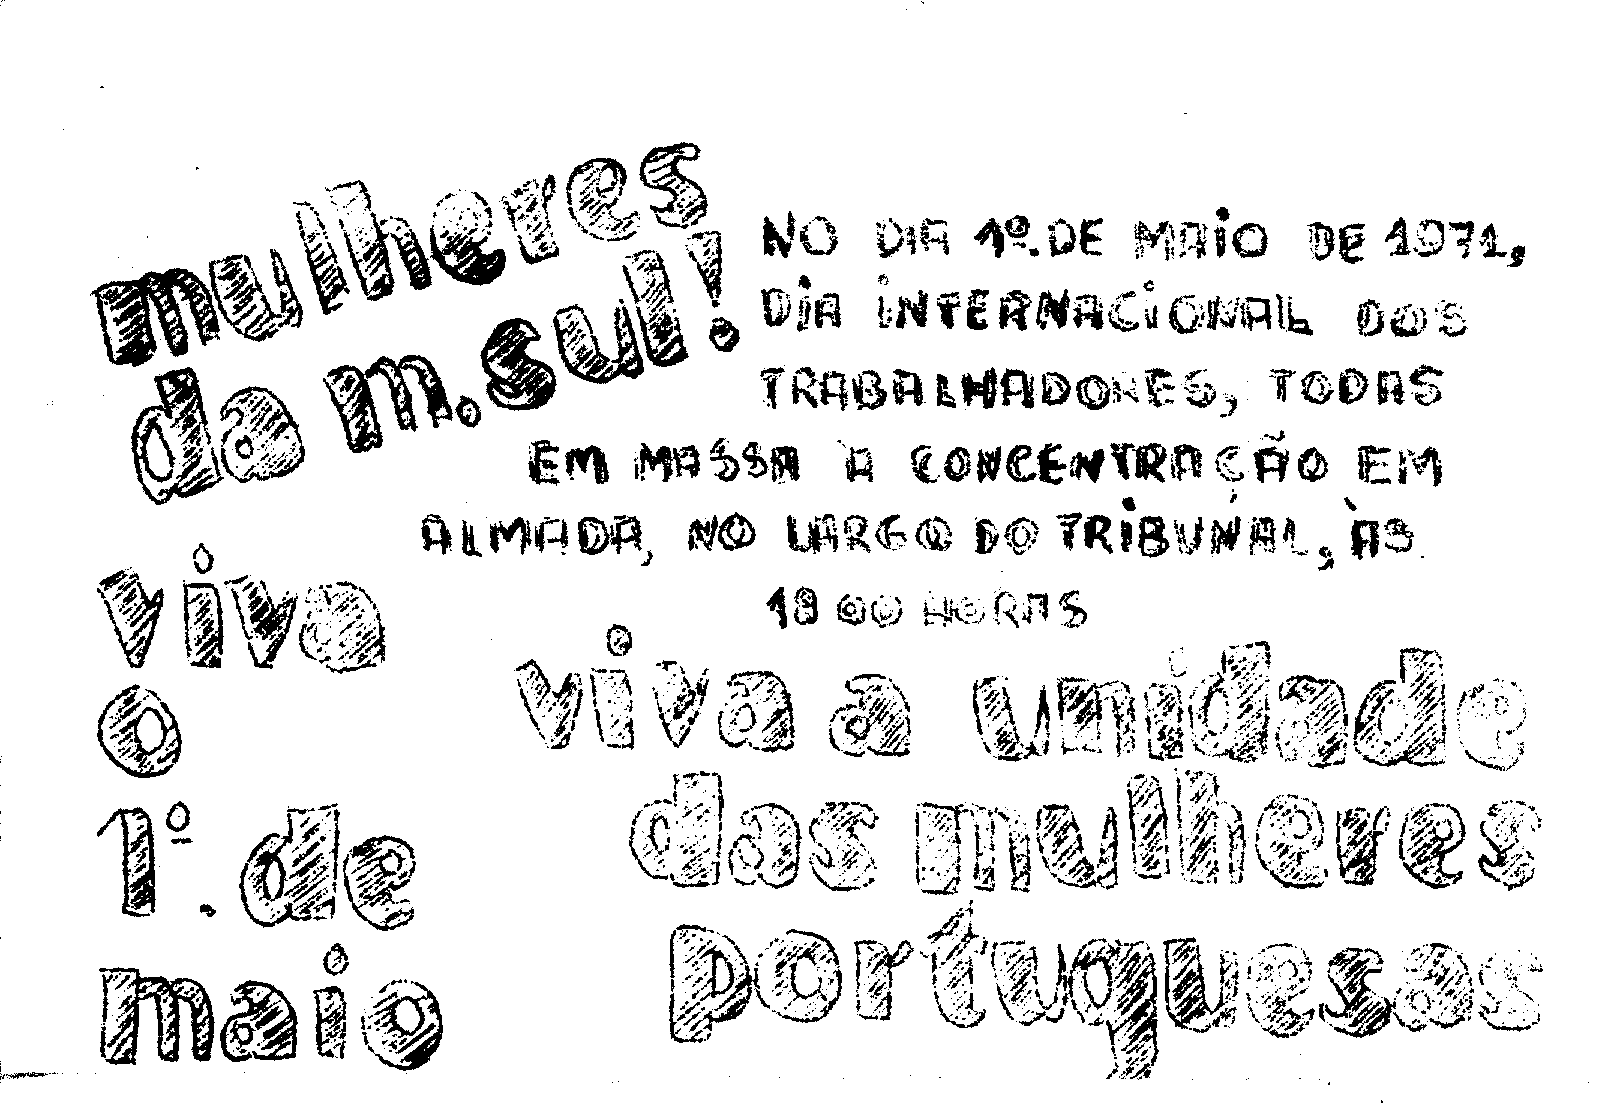 mulheres
da m. sul!
NO DIA 1º. DE MAIO DE 1971,
DIA INTERNACIONAL DOS
TRABALHADORES, TODAS
EM MASSA À CONCENTRAÇÃO EM
ALMADA, NO LARGO DO TRIBUNAL, ÀS
18 00 HORAS
viva
o
1º. de
maio
viva a unidade
das mulheres
portuguesas